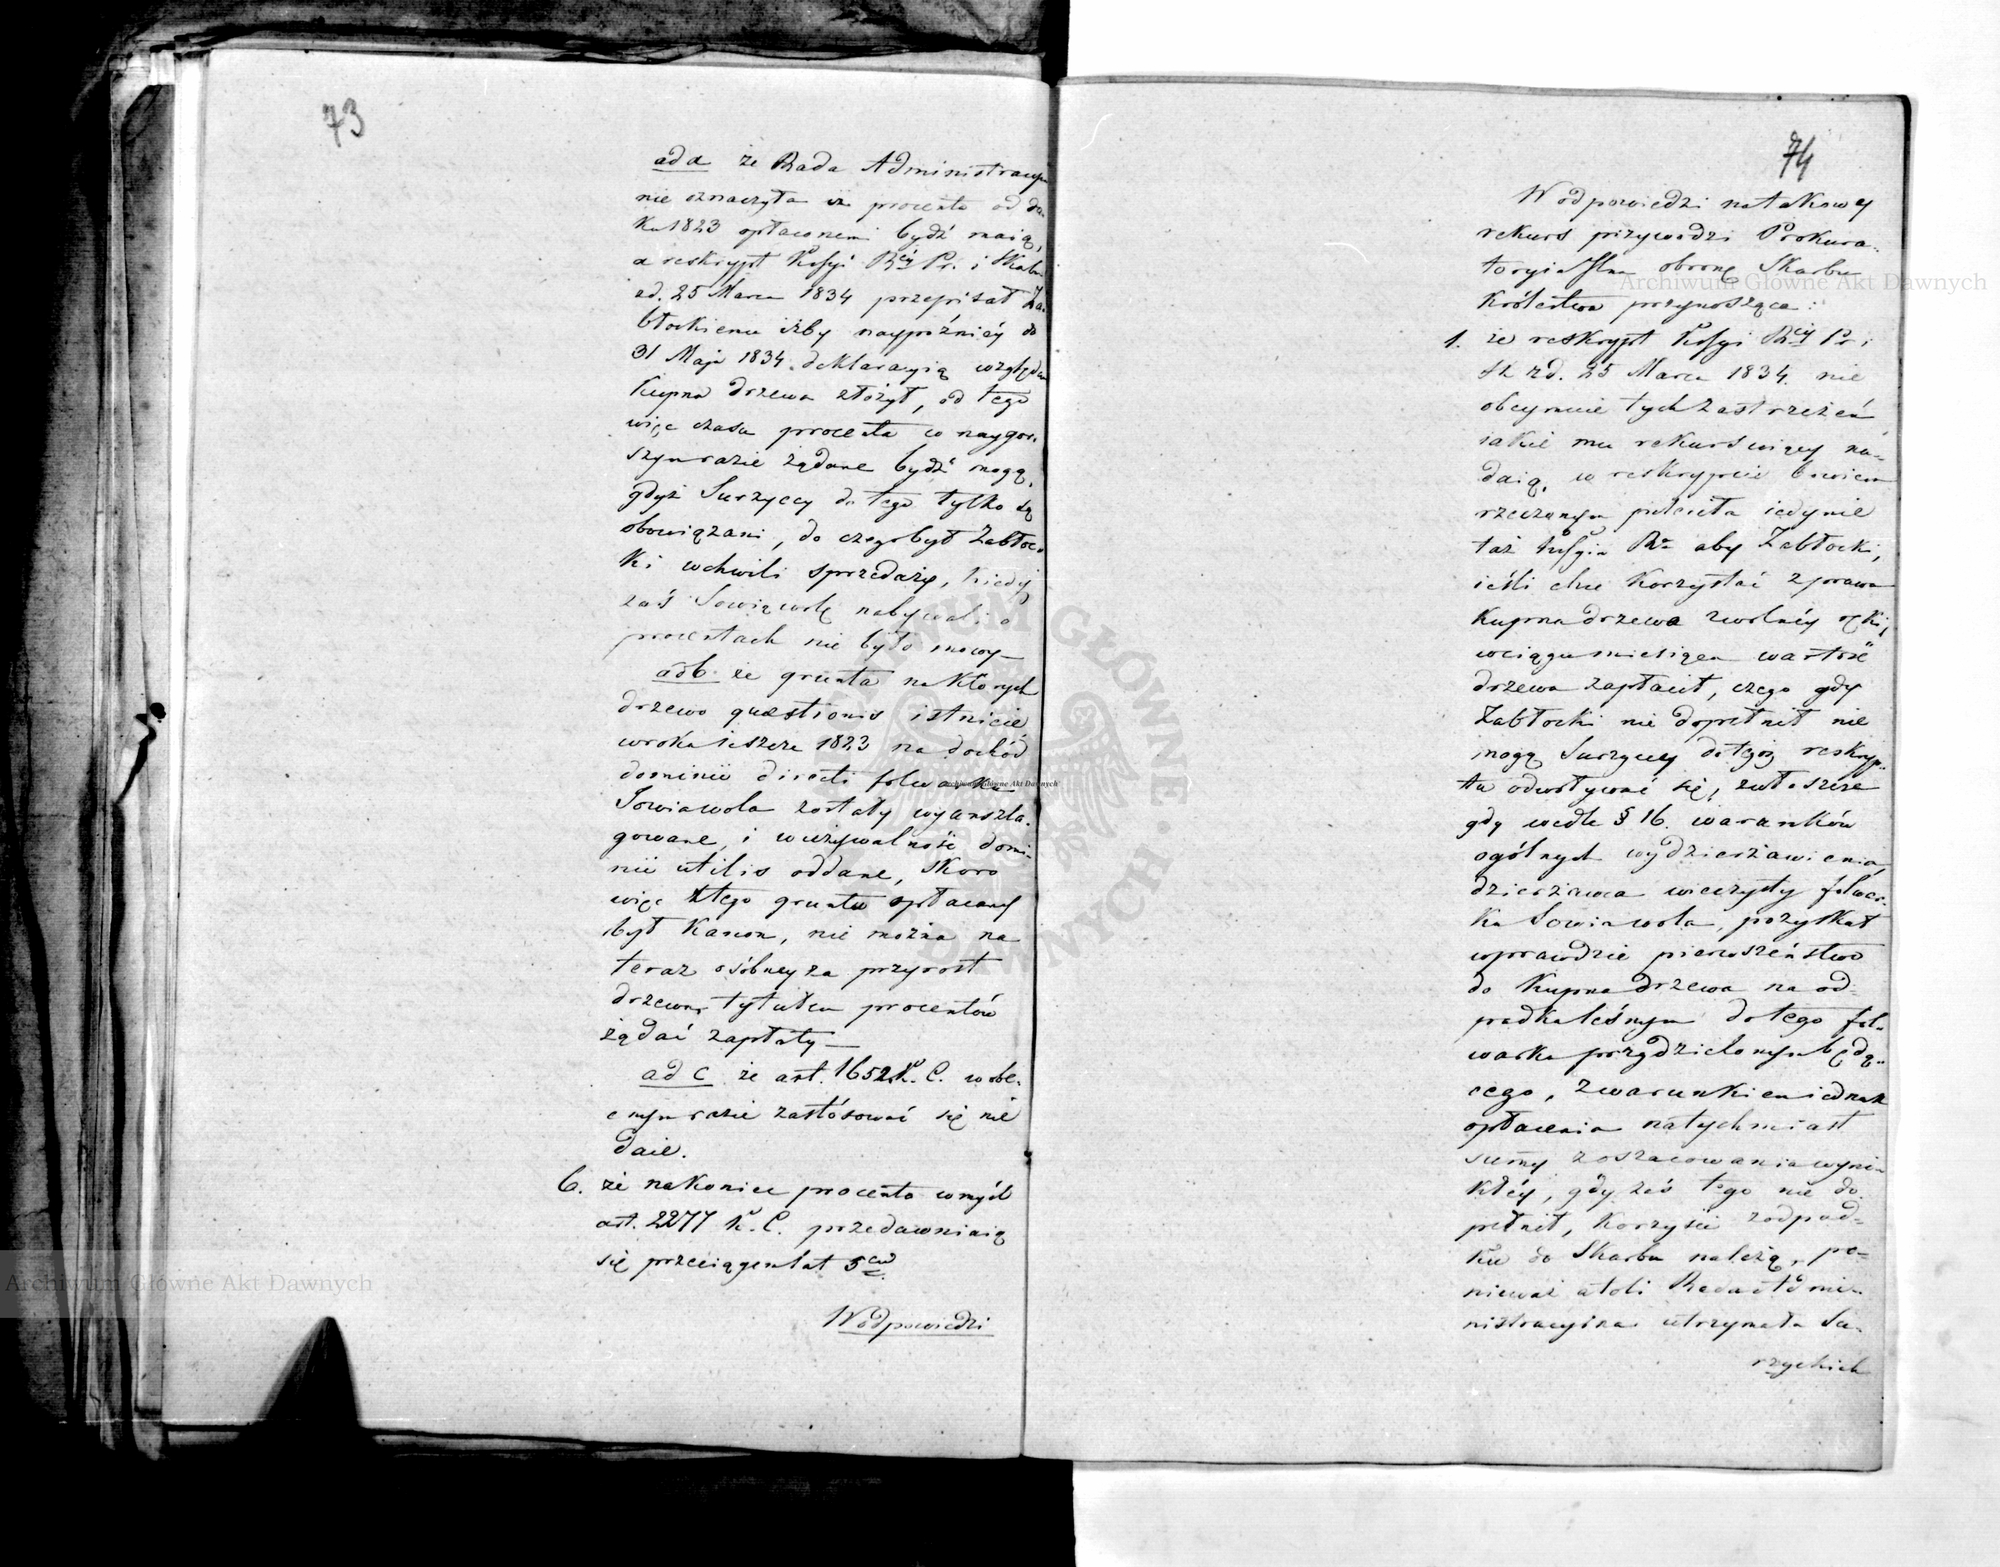 73
ad a że Rada Administracyj
nie oznaczyła iż procenta od
ku 1823 opłaconemi bydź maią,
a reskrypt Kośsyi R^cy Pr. i Skarbu
z d. 25 Marca 1834 przepisał Za-
błockiemu iżby naypóźniéy do
31 Maja 1834. deklaracyią względem
kupna drzewa złożył, od tego
więc czasu procenta w naygor-
szym razie żądane bydź mogą,
gdyż Surzyccy do tego tylko są
obowiązani, do czego był Zabłoc-
ki w chwili sprzedaży, kiedy
zaś Sowiąwolę nabywali o
procentach nie było mowy —
ad b. że grunta na których
drzewo quaestionis istnieie
w roku ieszcze 1823 na dochód
dominii directi folwarku
Sowiawola zostały wyanszla-
gowane, i w używalność domi-
nii utilis oddane, skoro
więc z tego gruntu opłacany
był Kanon, nie można na
teraz osóbney za przyrost
drzewa, tytułem procentów
żądać zapłaty —
ad c że art. 1652 K. C. w obe-
cnym razie zastósować się nie
daie.
6. że nakoniec procenta w myśl
art. 2277 K. C. przedawniaią
się przeciągem lat 5^ciu
W odpowiedzi
74
W odpowiedzi na takowy
rekurs przywodzi Prokura-
torya Jlna obronę Skarbu
Królestwa przynosząca:
1. że reskrypt Kośsyi R^cy Pr i
Sk z d. 25 Marca 1834. nie
obeymuie tych zastrzeżeń
iakie mu rekursuiący na-
daią, w reskrypcie bowiem
rzeczonym poleciła iedynie
taż Kośsyia R^a aby Zabłocki,
ieśli chce korzystać z prawa
kupna drzewa z wolnéy ręki,
w ciągu miesiąca wartość
drzewa zapłacił, czego gdy
Zabłocki nie dopełnił nie
mogą Surzyccy do tegoż reskryp-
tu odwoływać się, zwłaszcza
gdy wedle § 16. warunków
ogólnych wydzierżawienia
dzierżawca wieczysty folwar-
ku Sowiawola, pozyskał
wprawdzie pierwszeństwo
do kupna drzewa na od-
padku leśnym do tego fol-
warku przydzielonym będą-
cego, z warunkiem iednak
opłacenia natychmiast
sumy z oszacowania wyni-
kłéy, gdy zaś tego nie do-
pełnił, korzyści z odpad-
ku do Skarbu należą, po-
nieważ atoli Rada Admi-
nistracyina utrzymała Su-
rzyckich
Archiwum Główne Akt Dawnych
Archiwum Główne Akt Dawnych
Archiwum Główne Akt Dawnych
ARCHIWUM GŁÓWNE AKT DAWNYCH